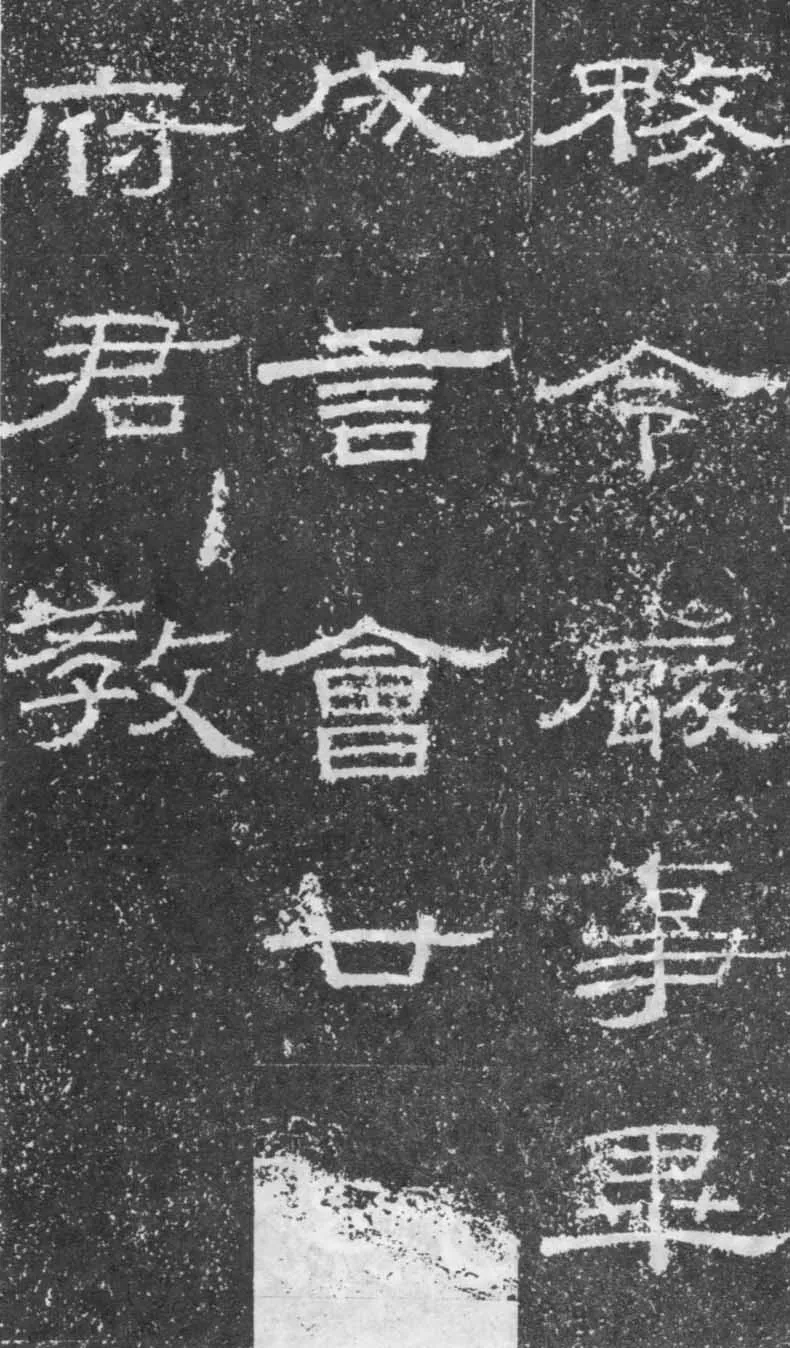 務令嚴事畢
成言會廿
府君教